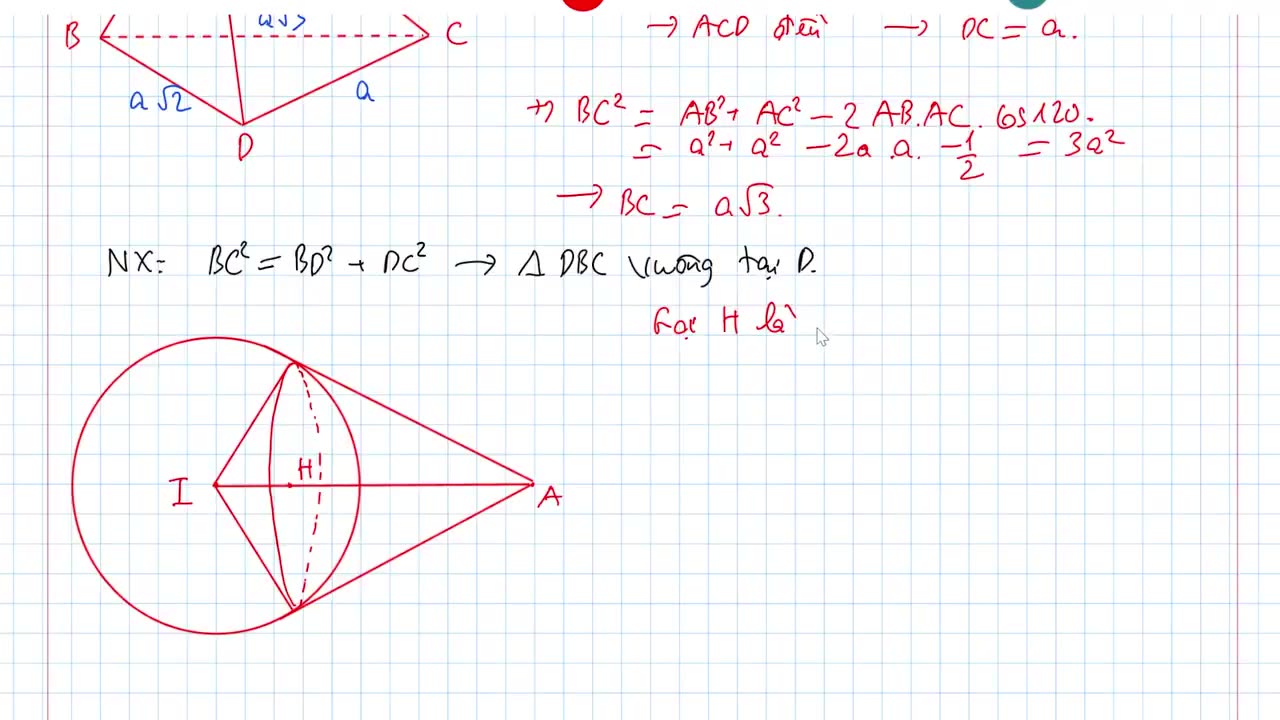 a√3
B C
→ ACD đều → DC = a.
a√2 a
D
+) BC² = AB² + AC² - 2 AB.AC. cos120.
= a² + a² - 2a .a. -1/2 = 3a²
→ BC = a√3.
NX: BC² = BD² + DC² → Δ DBC vuông tại D.
Gọi H là
H
I A